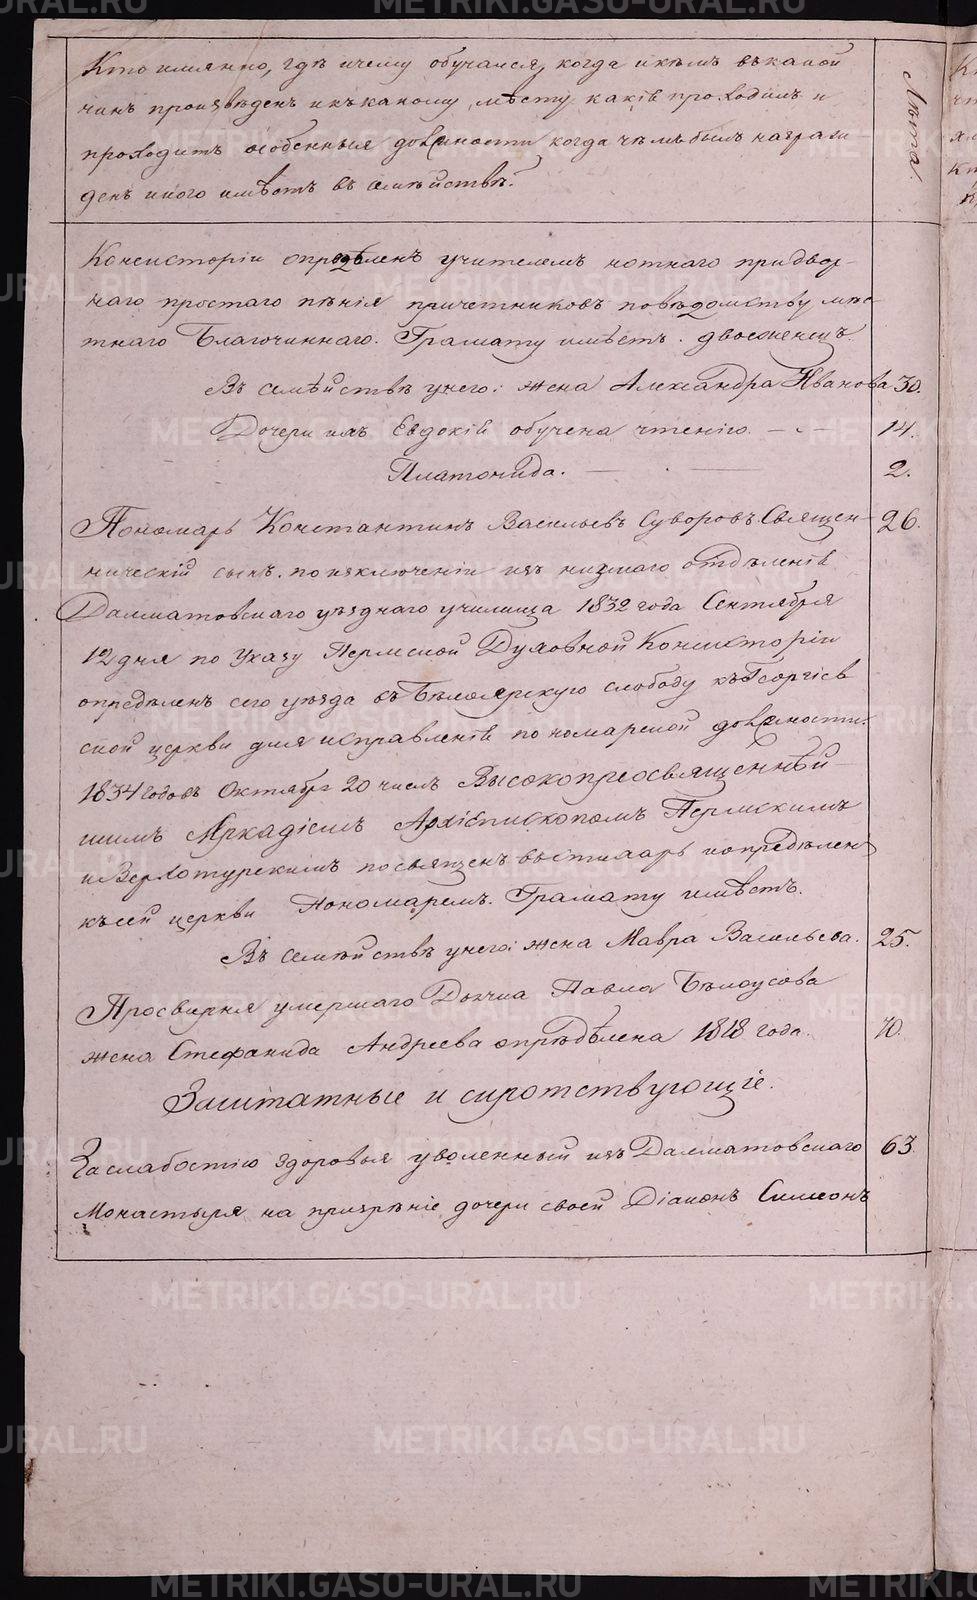 Кто имянно, гдѣ и чему обучался, когда и кѣмъ въ какой
чинъ произвѣденъ и къ какому мѣсту какія проходилъ и
проходитъ особенныя должности когда чѣмъ былъ награж
денъ и кого имѣетъ въ семѣйствѣ.
Лѣта
Консисторіи опредѣленъ учителемъ нотнаго придвор-
наго простаго пѣнія причетниковъ по вѣдомству мѣс
тнаго Благочиннаго. Грамату имѣетъ. двоеженецъ.
Въ семѣйствѣ у него: жена Александра Иванова 30.
Дочери ихъ Евдокія обучена чтенію — 14.
Платонида. — 2.
Пономарь Константинъ Васильевъ Суворовъ. Священ- 26.
ническій сынъ. по изключеніи изъ низшаго отдѣленія
Далматовскаго уѣзднаго училища 1832 года Сентября
12 дня по Указу Пермской Духовной Консисторіи
опредѣленъ сего уѣзда въ Бѣлоярскую слободу къ Георгіев
ской церкви для исправленія пономарской должности.
1834 годовъ Октября 20 числъ Высокопреосвященнѣй-
шимъ Аркадіемъ Архіепископомъ Пермскимъ
и Верхотурскимъ посвященъ въ стихарь и опредѣленъ
къ сей церкви Пономаремъ. Грамату имѣетъ.
Въ семѣйствѣ у него: жена Мавра Васильева. 25.
Просвирня умершаго Дьячка Павла Бѣлоусова
жена Стефанида Андреева опрѣдѣлена 1818 года. 70.
Заштатные и сиротствующіе.
За слабостію здоровья уволенный изъ Далматовскаго 63
Монастыря на призрѣніе дочери своей Діаконъ Симеонъ
METRIKI.GASO-URAL.RU